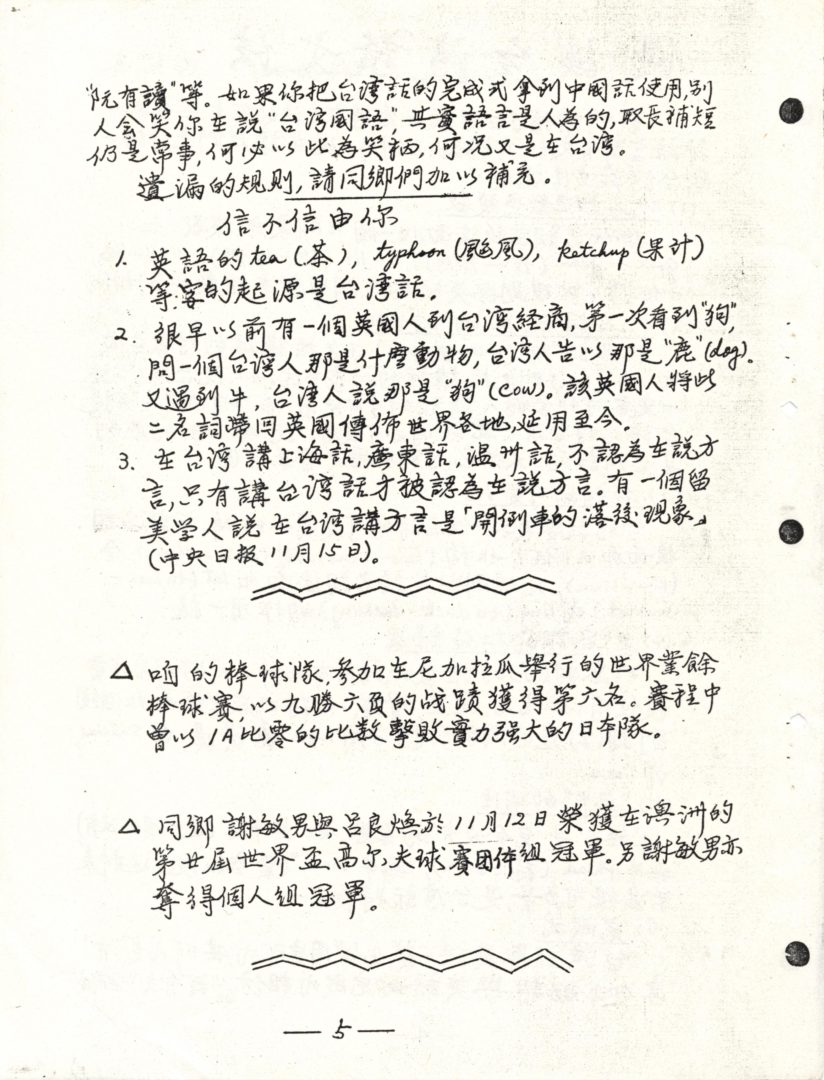 "阮有讀"等。如果你把台湾話的完成式拿到中國話使用,别
人会笑你在説"台湾國語",其實語言是人為的,取長補短
仍是常事,何必以此為笑柄,何况又是在台湾。
遺漏的規则,請同鄉們加以補充。
信不信由你
1. 英語的tea(茶), typhoon(颱風), ketchup(果汁)
等字的起源是台湾話。
2. 很早以前有一個英國人到台湾経商,第一次看到"狗",
問一個台湾人那是什麼動物,台湾人告以那是"鹿"(dog)。
又遇到牛,台湾人説那是"狗"(cow)。該英國人將此
二名詞帶回英國傳佈世界各地,延用至今。
3. 在台湾講上海話,廣東話,温州話,不認為在説方
言,只有講台湾話才被認為在説方言。有一個留
美学人説在台湾講方言是「開倒車的落後現象」
(中央日报11月15日)。
△ 咱的棒球隊,參加在尼加拉瓜舉行的世界業餘
棒球賽,以九勝六負的战蹟獲得第六名。賽程中
曾以1A比零的比数擊敗實力强大的日本隊。
△ 同鄉謝敏男與呂良煥於11月12日榮獲在澳洲的
第廿屆世界盃高尔夫球賽团体組冠軍。另謝敏男亦
奪得個人組冠軍。
— 5 —